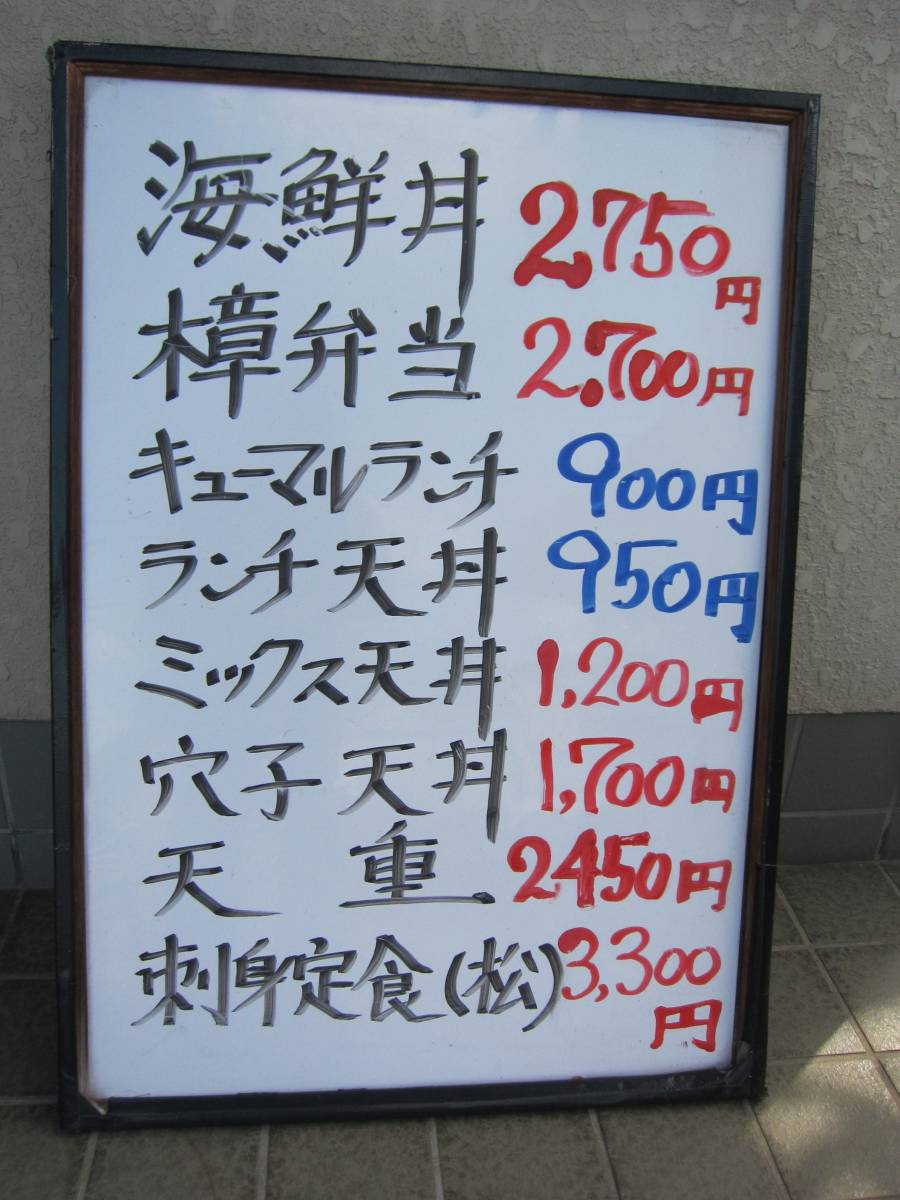 海鮮丼 2750円
樟弁当 2.700円
キューマルランチ 900円
ランチ天丼 950円
ミックス天丼 1,200円
穴子天丼 1,700円
天 重 2450円
刺身定食(松) 3,300円